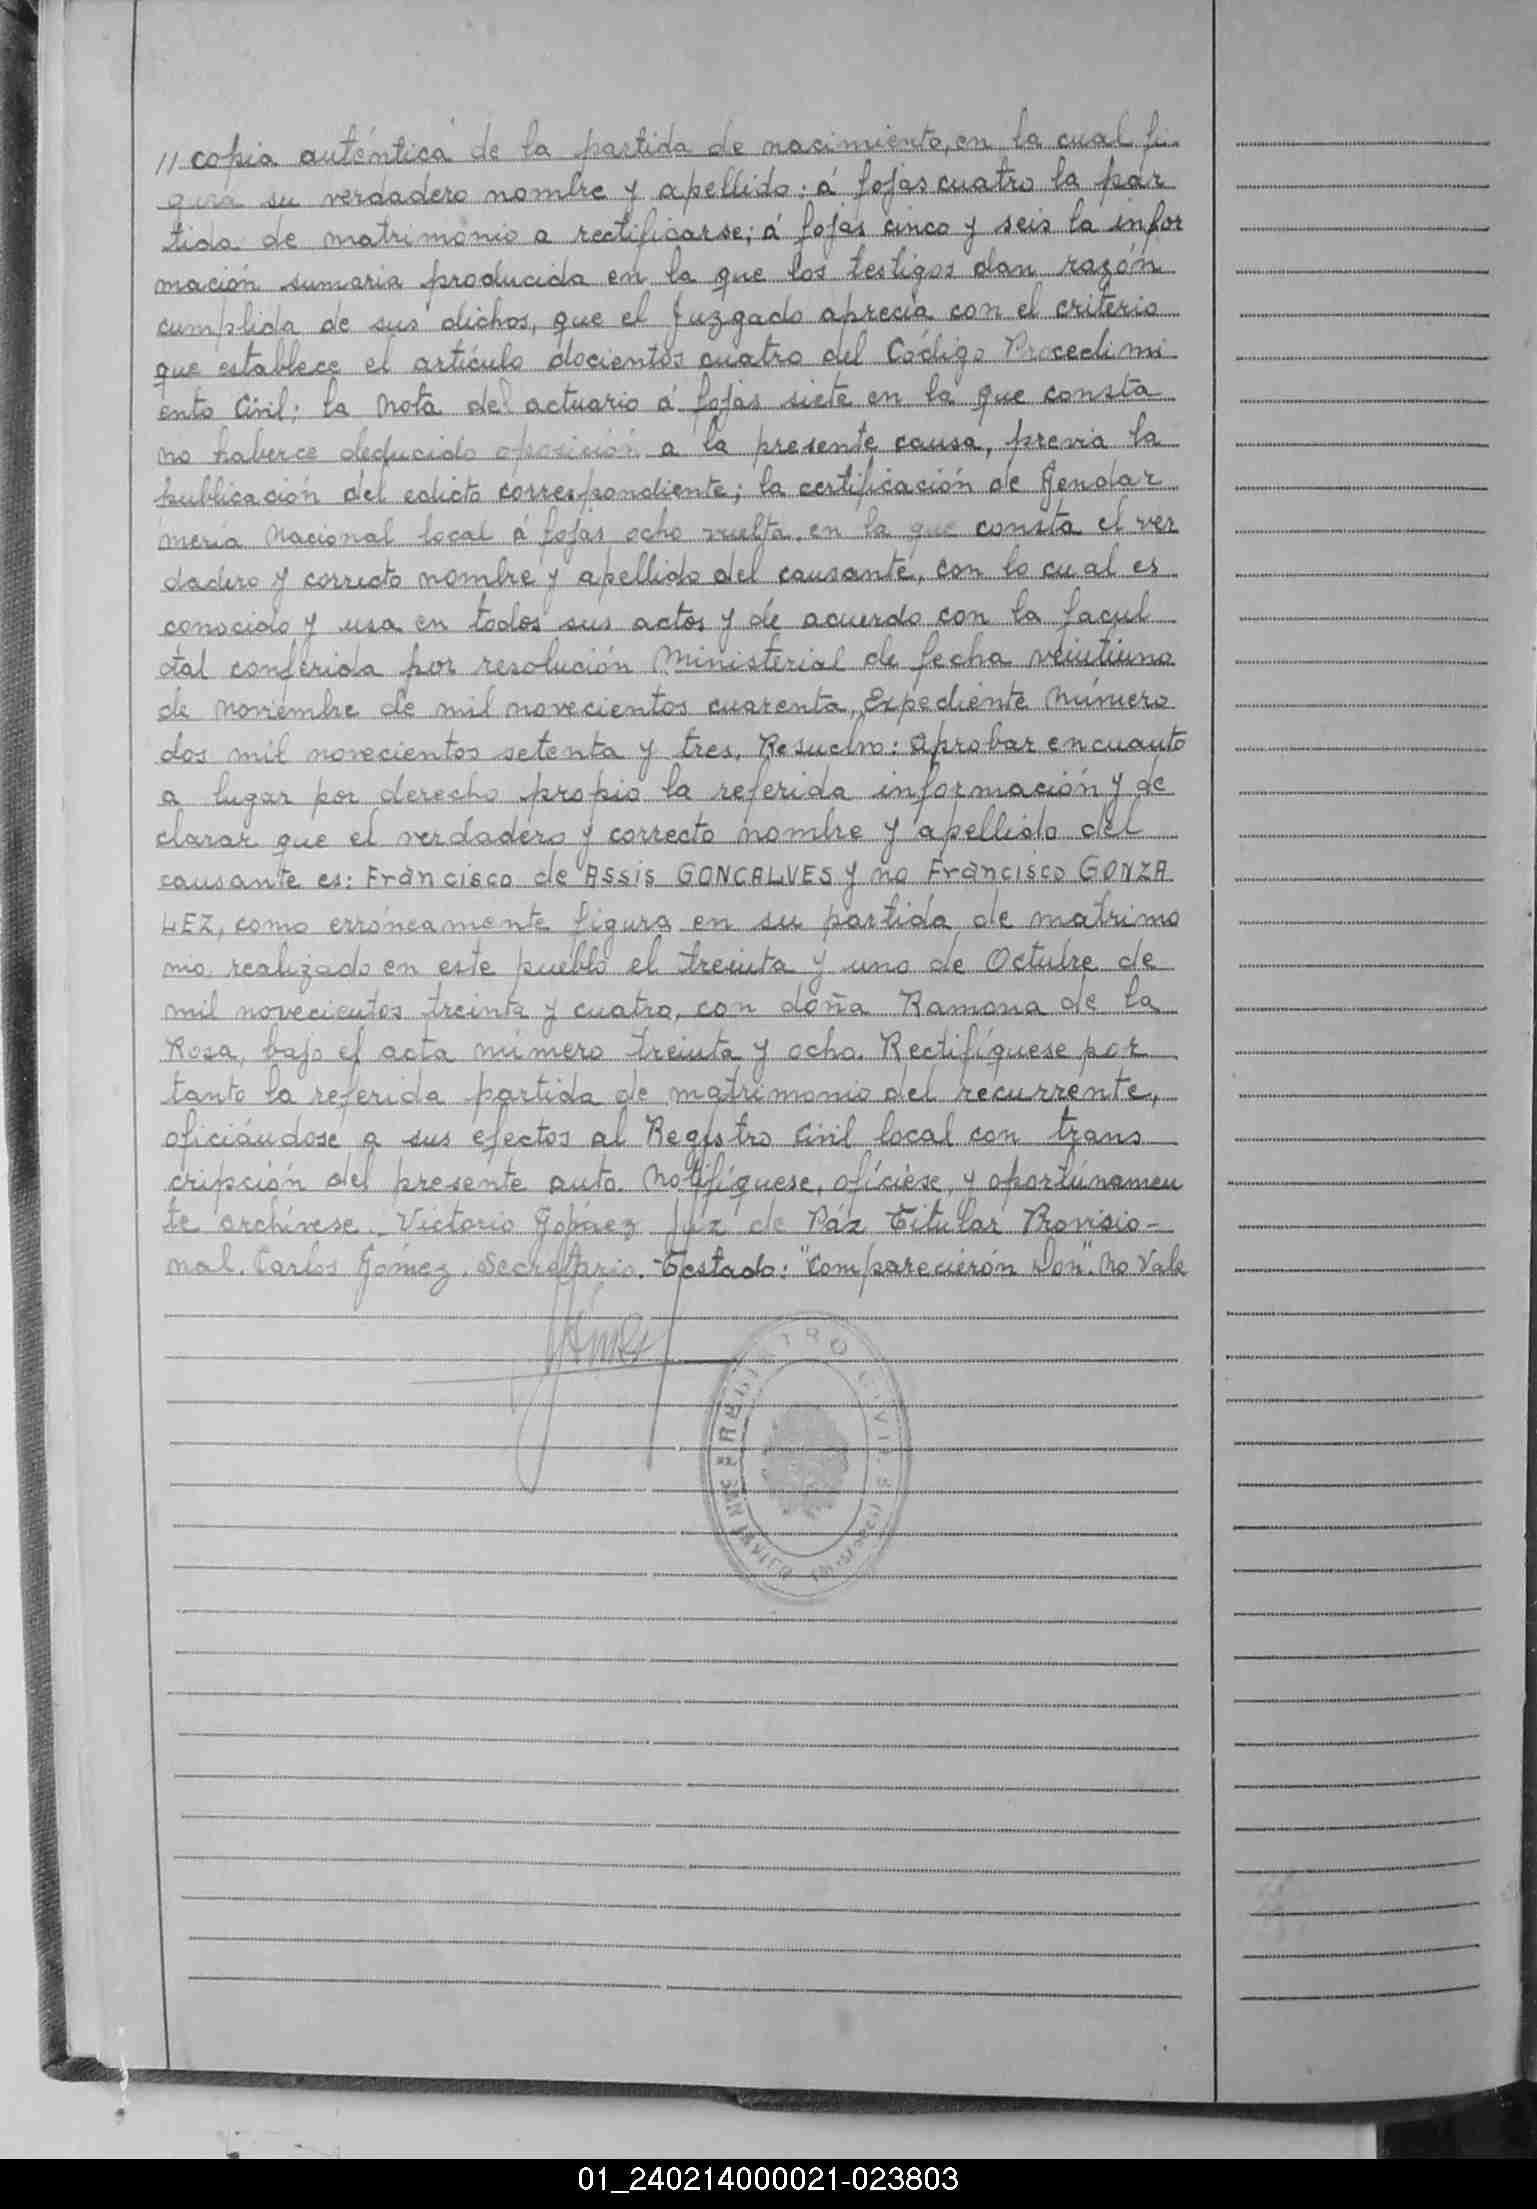 // copia auténtica de la partida de nacimiento, en la cual fi-
gura su verdadero nombre y apellido: á fojas cuatro la par
tida de matrimonio a rectificarse; á fojas cinco y seis la infor
mación sumaria producida en la que los testigos dan razón
cumplida de sus dichos, que el Juzgado aprecia con el criterio
que establece el artículo docientos cuatro del Código Procedimi
ento Civil; la nota del actuario á fojas siete en la que consta
no haberce deducido oposición a la presente causa, previa la
publicación del edicto correspondiente; la certificación de Gendar
mería Nacional local á fojas ocho vuelta, en la que consta el ver
dadero y correcto nombre y apellido del causante, con lo cual es
conocido y usa en todos sus actos y de acuerdo con la facul
tal conferida por resolución Ministerial de fecha veintiuno
de noviembre de mil novecientos cuarenta, Expediente Número
dos mil novecientos setenta y tres, Resuelvo: Aprobar encuanto
a lugar por derecho propio la referida información y de
clarar que el verdadero y correcto nombre y apellido del
causante es: Francisco de ASSIS GONCALVES y no Francisco GONZA
LEZ, como erróneamente figura en su partida de matrimo
nio, realizado en este pueblo el treinta y uno de Octubre de
mil novecientos treinta y cuatro, con doña Ramona de la
Rosa, bajo el acta número treinta y ocho. Rectifíquese por
tanto la referida partida de matrimonio del recurrente,
oficiándose a sus efectos al Registro Civil local con trans
cripción del presente auto. Notifíquese, ofíciese, y oportúnamen
te archívese. Victorio Gopaez Juz de Páz Titular Provisio-
nal. Carlos Gómez. Secretario. Testado: "Comparecierón Don". No Vale
REGISTRO CIVIL
SAN JAVIER
01_240214000021-023803